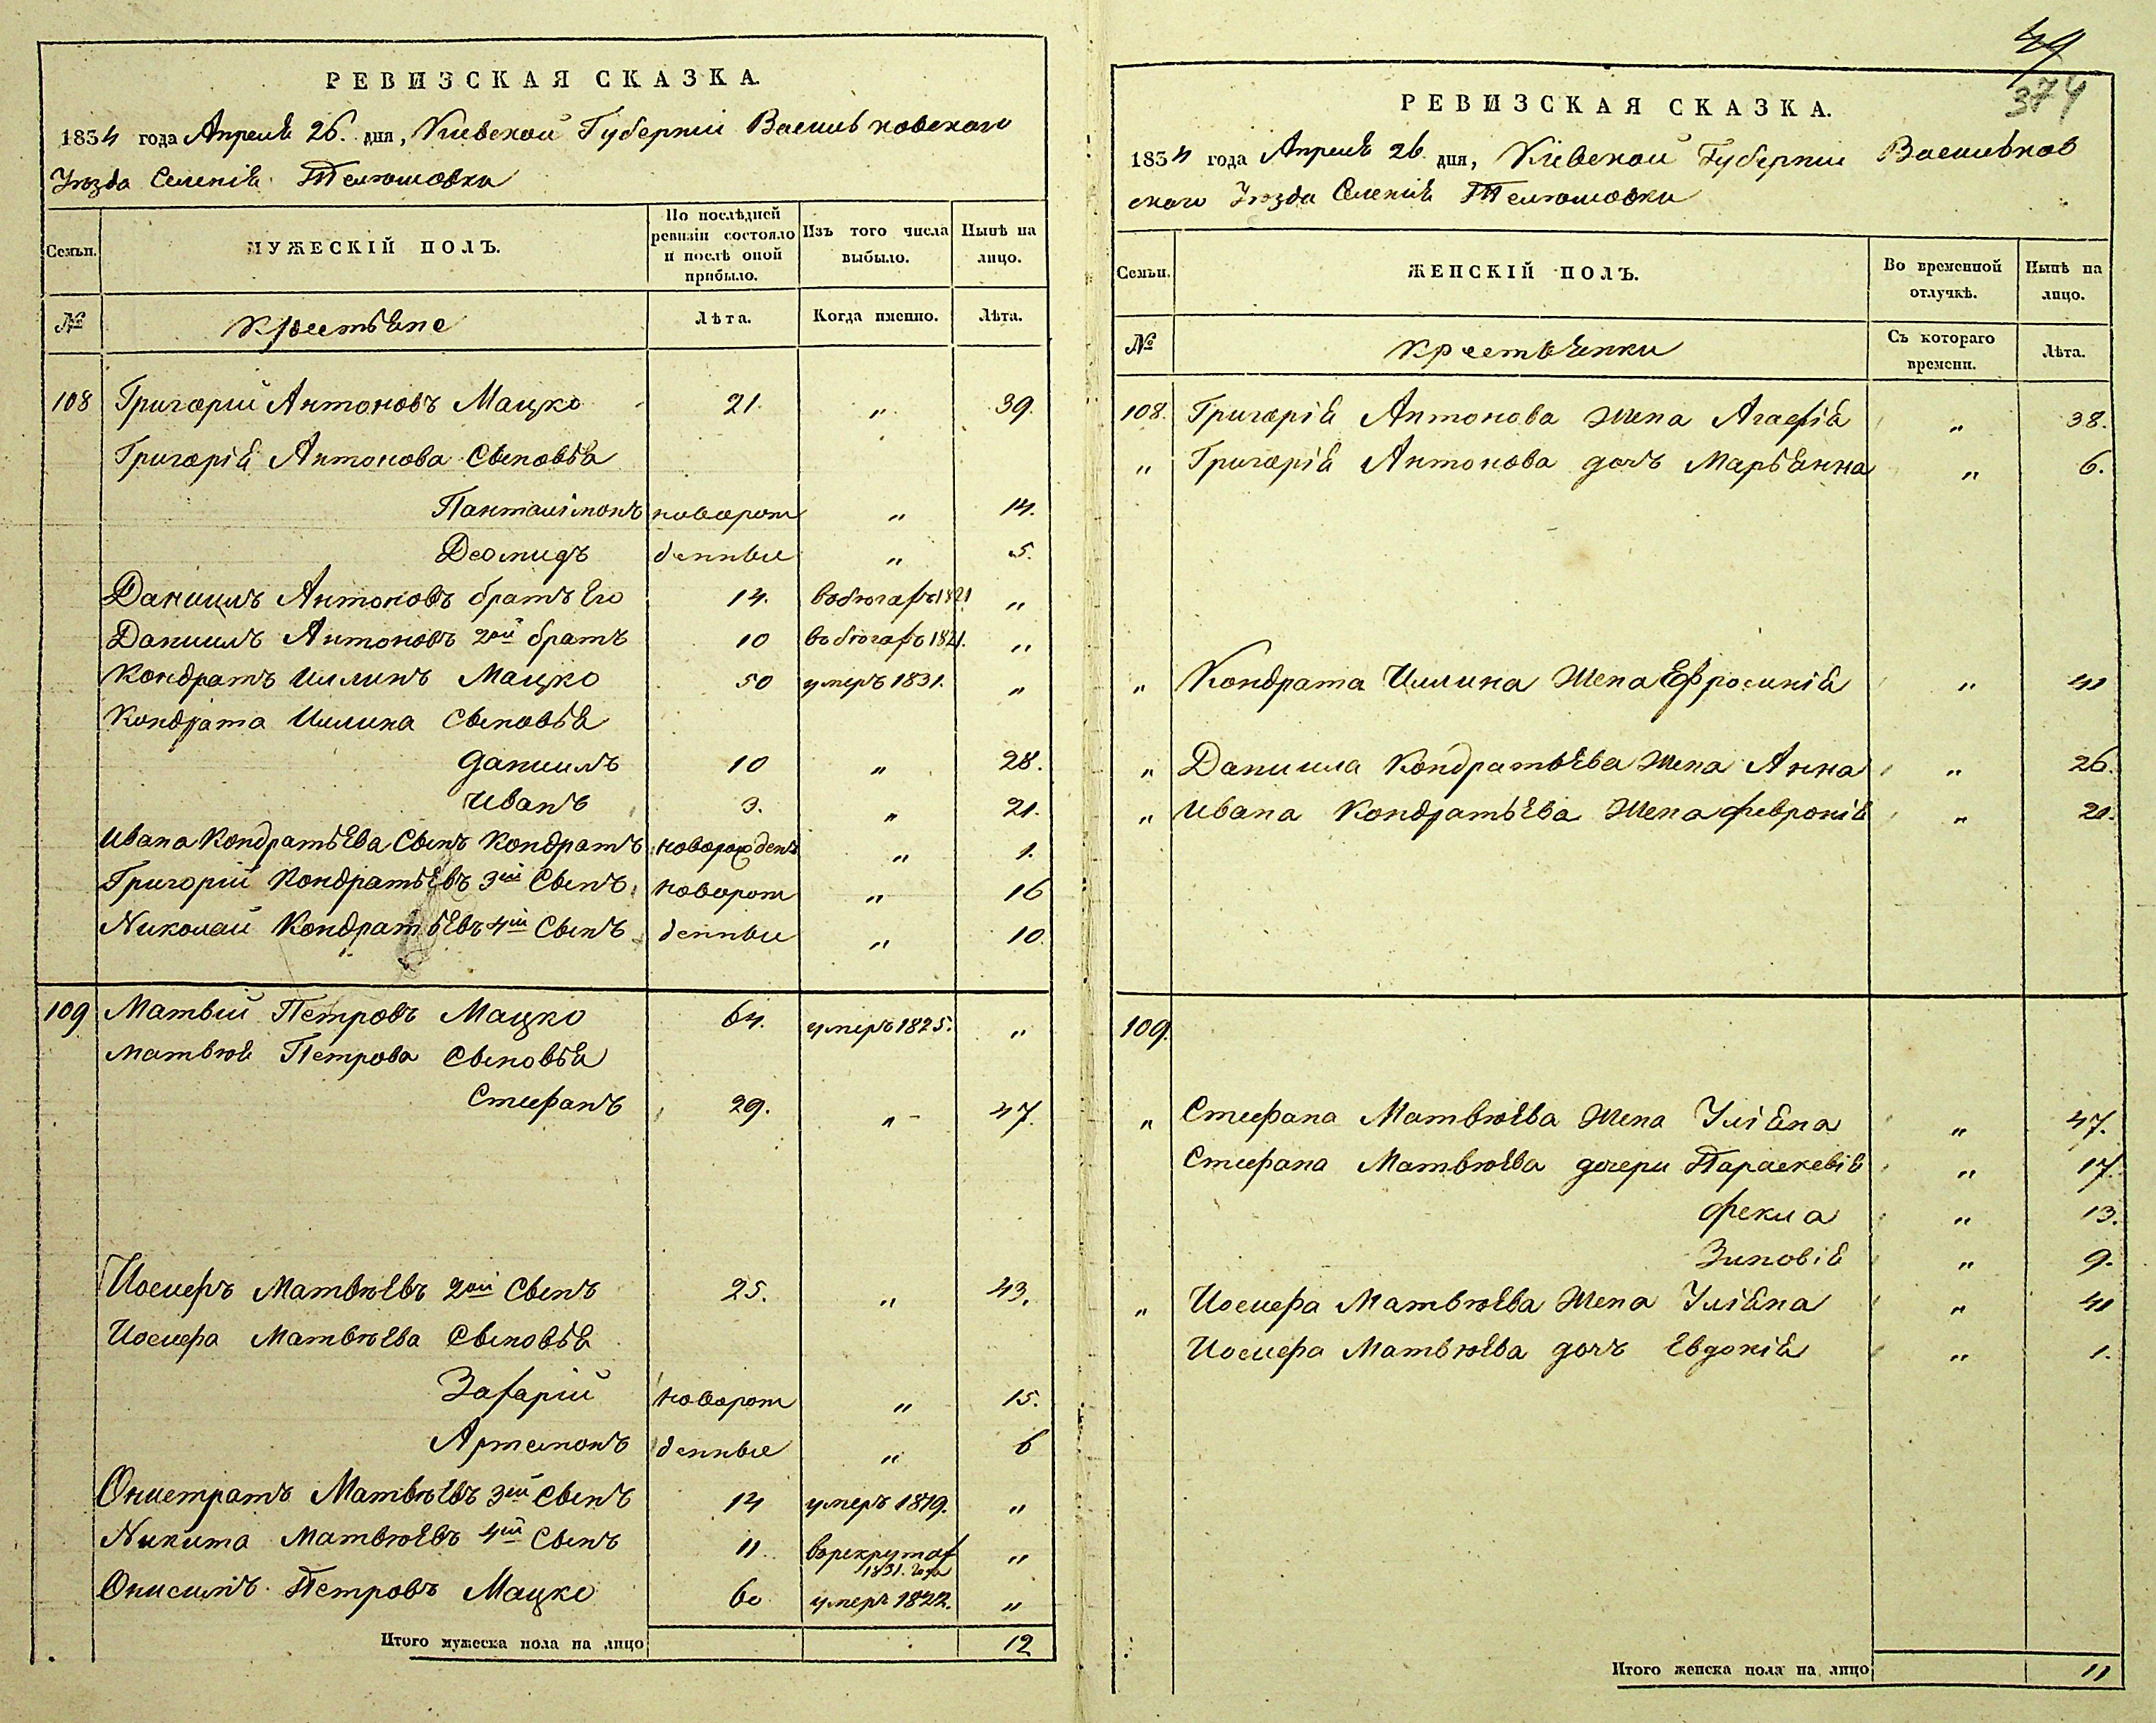 РЕВИЗСКАЯ СКАЗКА.
1834 года Апреля 26. дня, Киевской Губерніи Васильковскаго
Уѣзда Селенія Телюшовки
Семьи.
МУЖЕСКІЙ ПОЛЪ.
По послѣдней ревизіи состояло и послѣ оной прибыло.
Изъ того числа выбыло.
Нынѣ на лицо.
№
Крестьяне
Лѣта.
Когда именно.
Лѣта.
108 Григорій Антоновъ Мацко 21. „ 39.
Григорія Антонова Сыновья
Панталімонъ новорож „ 14.
Деомидъ денные „ 5.
Даниилъ Антоновъ братъ Его 14. въ бѣгахъ 1821 „
Даниилъ Антоновъ 2ой братъ 10 въ бѣгахъ 1821. „
Кондратъ Илинъ Мацко 50 умеръ 1831. „
Кондрата Илина Сыновья
Даниилъ 10 „ 28.
Иванъ 3. „ 21.
Ивана Кондратьева Сынъ Кондратъ новорожденъ „ 1.
Григорій Кондратьевъ 3ій Сынъ новорож „ 16
Николай Кондратьевъ 4ій Сынъ денные „ 10.
109 Матвій Петровъ Мацко 64. умеръ 1825. „
Матвѣя Петрова Сыновья
Стефанъ 29. „ 47.
Иосифъ Матвѣевъ 2ой Сынъ 25. „ 43.
Иосифа Матвѣева Сыновья
Захарій новорож „ 15.
Артемонъ денные „ 6
Онистратъ Матвѣевъ 3ій Сынъ 14 умеръ 1819. „
Никита Матвѣевъ 4ій Сынъ 11. въ рекрутах 1831. года „
Онисимъ Петровъ Мацко 60 умеръ 1822. „
Итого мужеска пола на лицо 12
374
РЕВИЗСКАЯ СКАЗКА.
1834 года Апреля 26 дня, Кіевской Губерніи Васильков
скаго Уѣзда Селенія Телюшовки
Семьи.
ЖЕНСКІЙ ПОЛЪ.
Во временной отлучкѣ.
Нынѣ на лицо.
№
Крестьянки
Съ котораго времени.
Лѣта.
108. Григорія Антонова Жена Агафія „ 38.
„ Григорія Антонова дочь Марьянна „ 6.
„ Кондрата Илина Жена Ефросинія „
„ Даниила Кондратьева Жена Анна „ 26.
„ Ивана Кондратьева Жена Февронія „
109.
„ Стефана Матвѣева Жена Уліяна „ 47.
Стефана Матвѣева дочери Параскевія „ 17.
Фекла „ 13.
Зиновія „ 9.
„ Иосифа Матвѣева Жена Уліяна „
Иосифа Матвѣева дочь Евдокія „ 1.
Итого женска пола на лицо 11